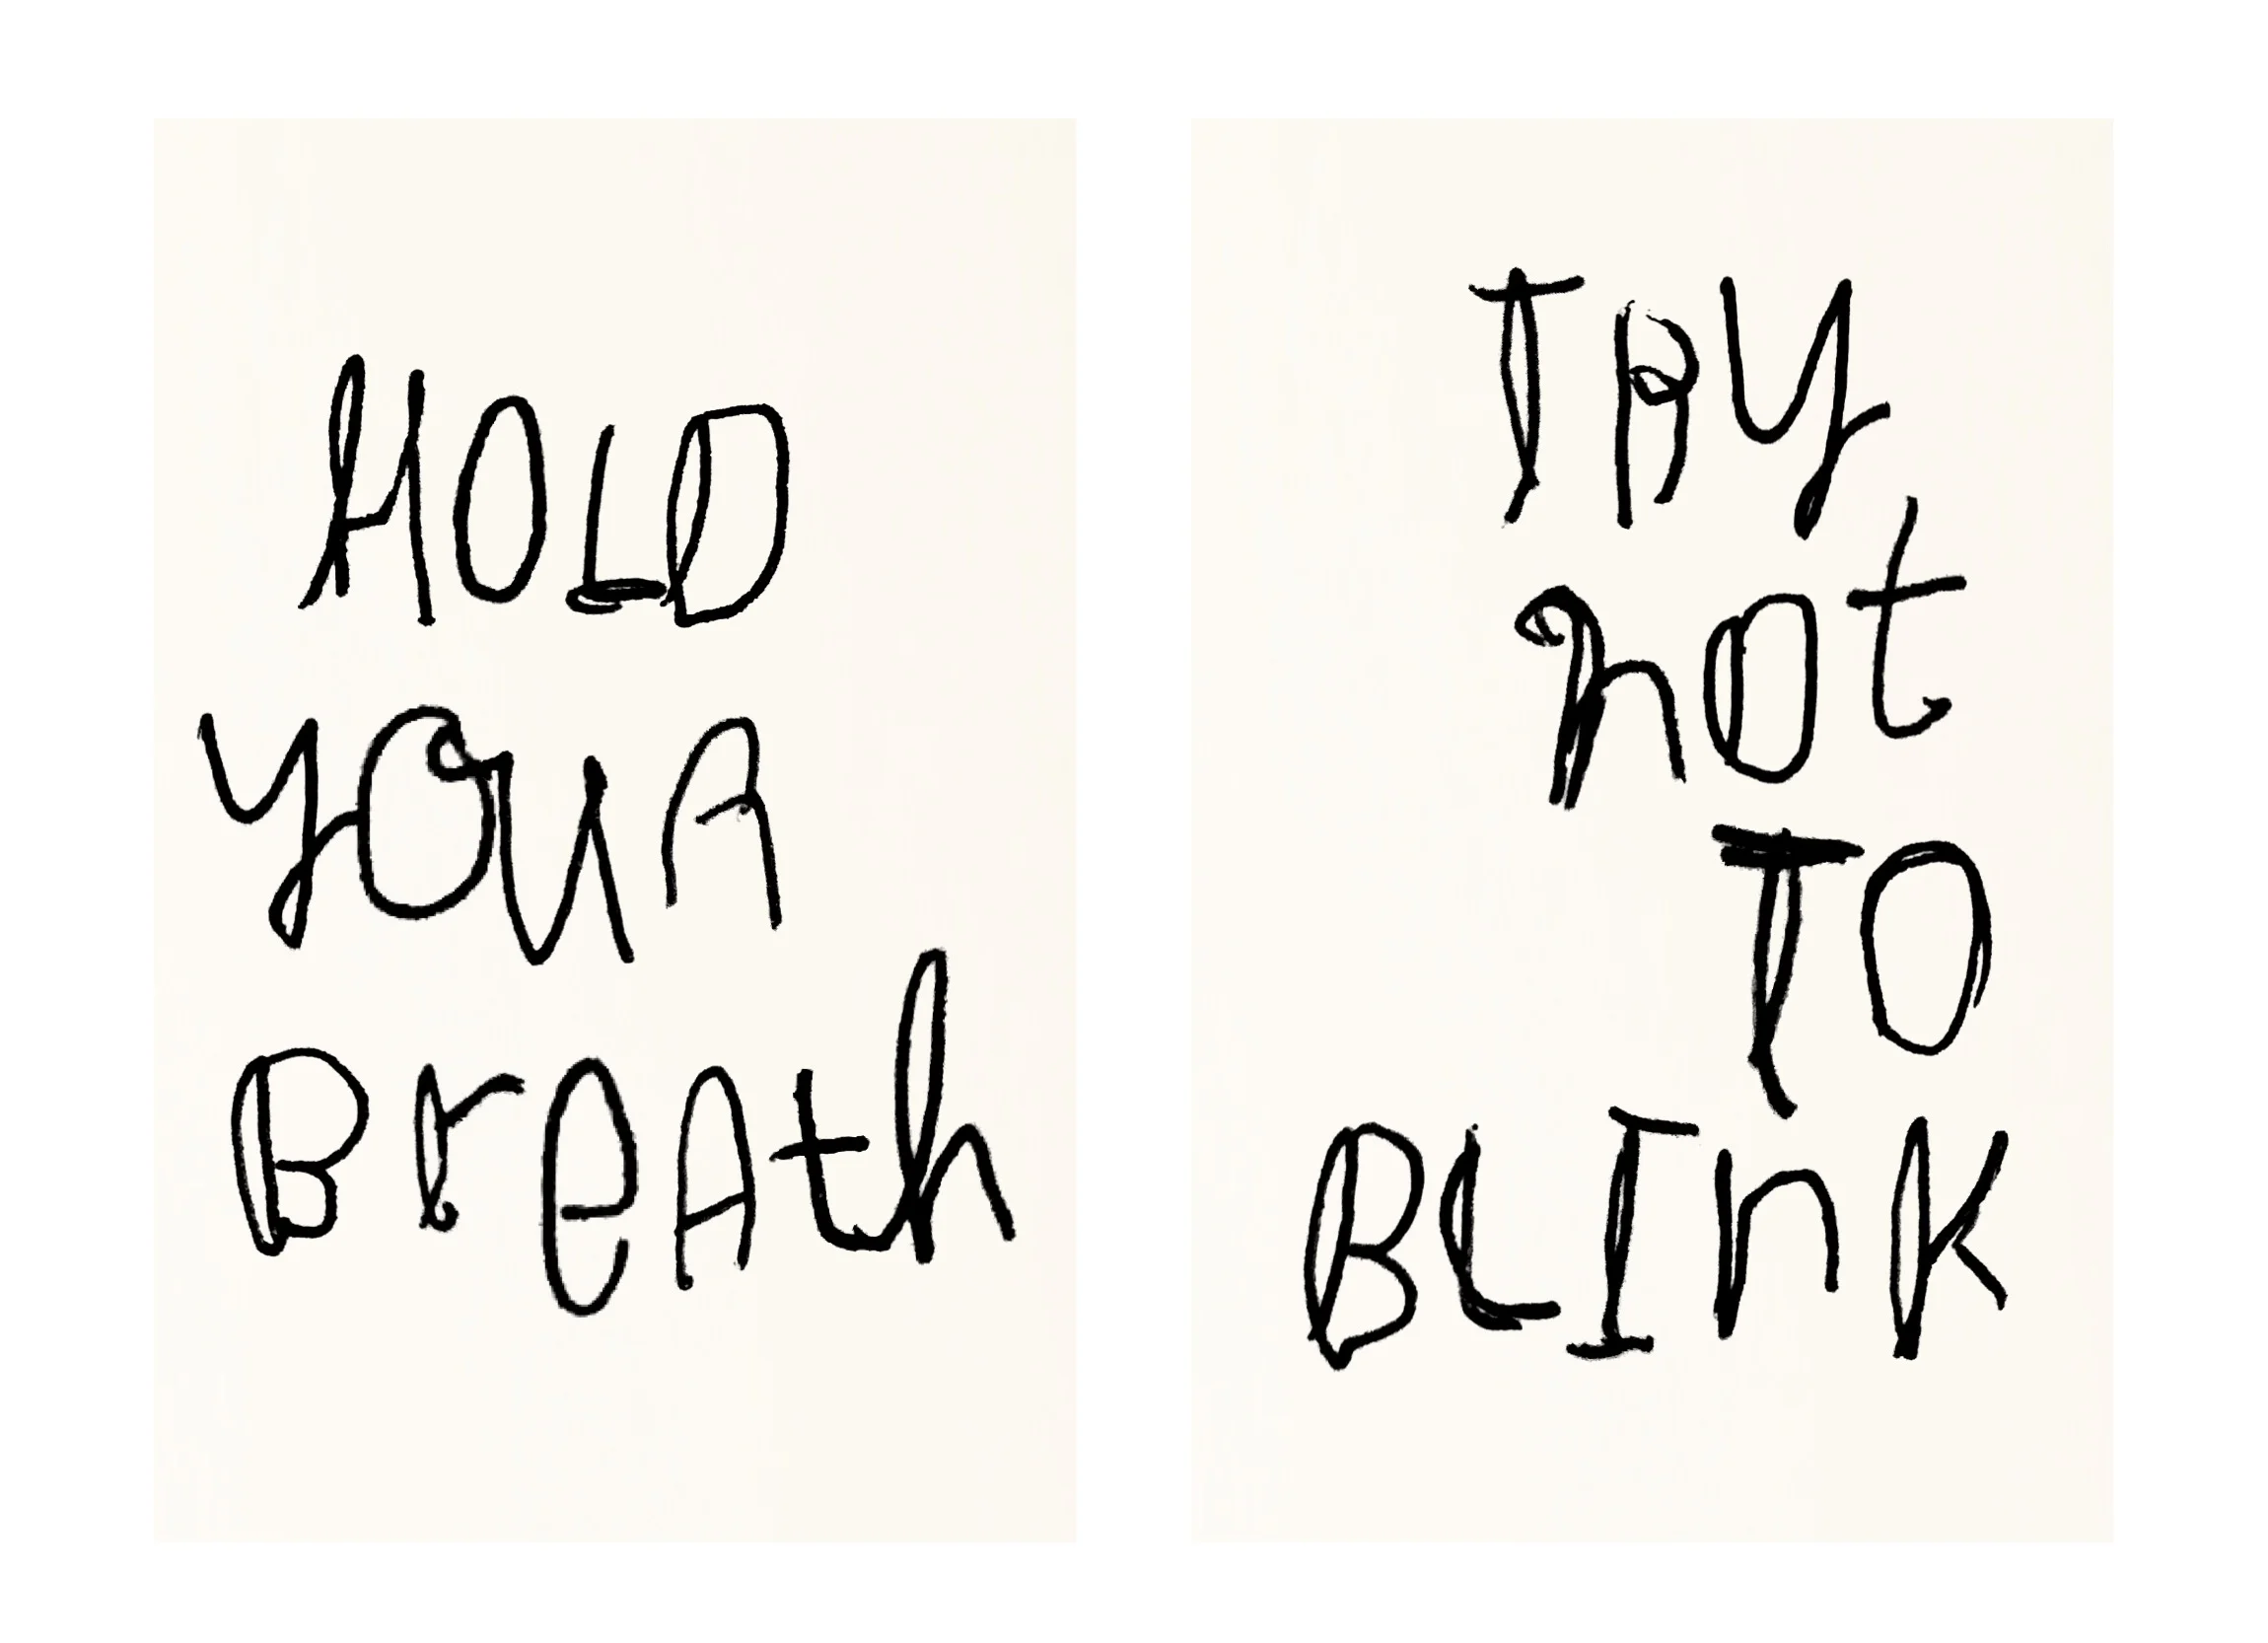 HOLD
YOUR
BreAth
TRY
not
TO
BLInK